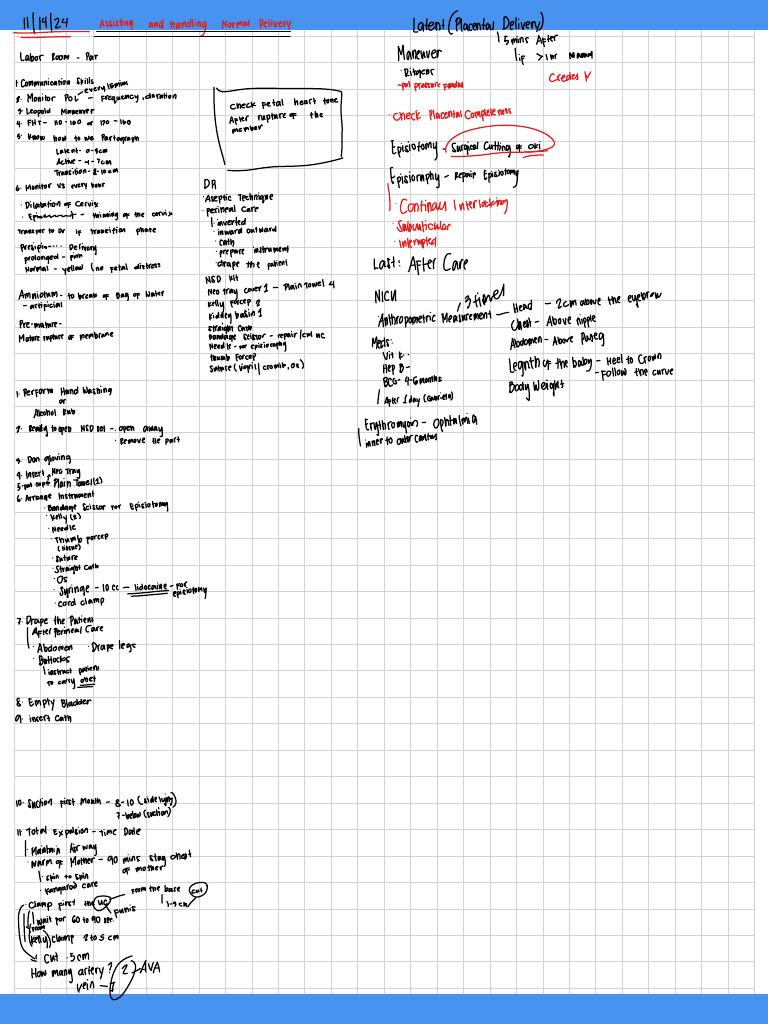 11/14/24 Assisting and Handling Normal Delivery
Labor Room - Par
1. Communication Skills
2. Monitor POL - Frequency, duration
every 15 mins
3. Leopold Maneuver
4. FHT - 110-160 or 120-160
5. Know how to use Partograph
Latent - 0-3cm
Active - 4-7cm
Transition - 8-10cm
6. Monitor VS every hour
• Dilatation of Cervix
- thinning of the cervix
Transfer to DR if transition phase
Delivery
prolonged -
Normal - yellow (no fetal distress
Amniotum - to break of Bag of Water
- artificial
Pre-mature -
Mature rupture of membrane
check fetal heart tone
After rupture of the
member
DR
• Aseptic Technique
• perineal Care
inverted
• inward outward
• Cath
• prepare instrument
• drape the patient
NSD Kit
Neo tray cover 1 - Plain Towel 4
Kelly forcep 2
Kidney basin 1
Straight Cath
Bandage Scissor - repair/cut UC
Needle - for episiotomy
thumb Forcep
Suture (Vicryl/ cromic, Os)
1. Perform Hand Washing
or
Alcohol Rub
2. Ready to open NSD set - open away
• Remove the part
3. Don gloving
4. Insert Neo Tray
5. put Plain Towel (1)
6. Arrange Instrument
• Bandage Scissor for Episiotomy
• Kelly (2)
• Needle
• Thumb forcep
(tissue)
• Suture
• Straight Cath
• Os
• Syringe - 10 cc - lidocaine - for
episiotomy
• cord clamp
7. Drape the Patient
After Perineal Care
• Abdomen • Drape legs
• Buttocks
instruct patient
to carry
8. Empty Bladder
9. insert Cath
10. Suction first Mouth - 8-10
7-below (suction)
11. Total Expulsion - Time Date
• Maintain Air way
• Warm of Mother - 90 mins stay chest
of mother
• skin to skin
• Kangaroo care
• Clamp first the UC
from the base cut
Funis
wait for 60 to 90 sec.
(Kelly) clamp 2 to 5 cm
Cut .5cm
How many artery? 2 - AVA
vein - 1
Latent (Placental Delivery)
5 mins After
if >1hr Manual
Maneuver
• Ritgens
- put pressure
Credes
• Check Placental Completeness
Episiotomy - Surgical Cutting of
Episioraphy - Repair Episiotomy
• Continous Interlocking
• Subcuticular
• Interupted
Last: After Care
NICU
• Anthropometric Measurement
3 times
- Head - 2cm above the eyebrow
Chest - Above nipple
Abdomen - Above
Legnth of the baby - Heel to Crown
- Follow the curve
Body Weight
Meds:
Vit K -
Hep B -
BCG - 4-6 months
After 1 day
Erythromycin - Ophtalmia
inner to outer cantus